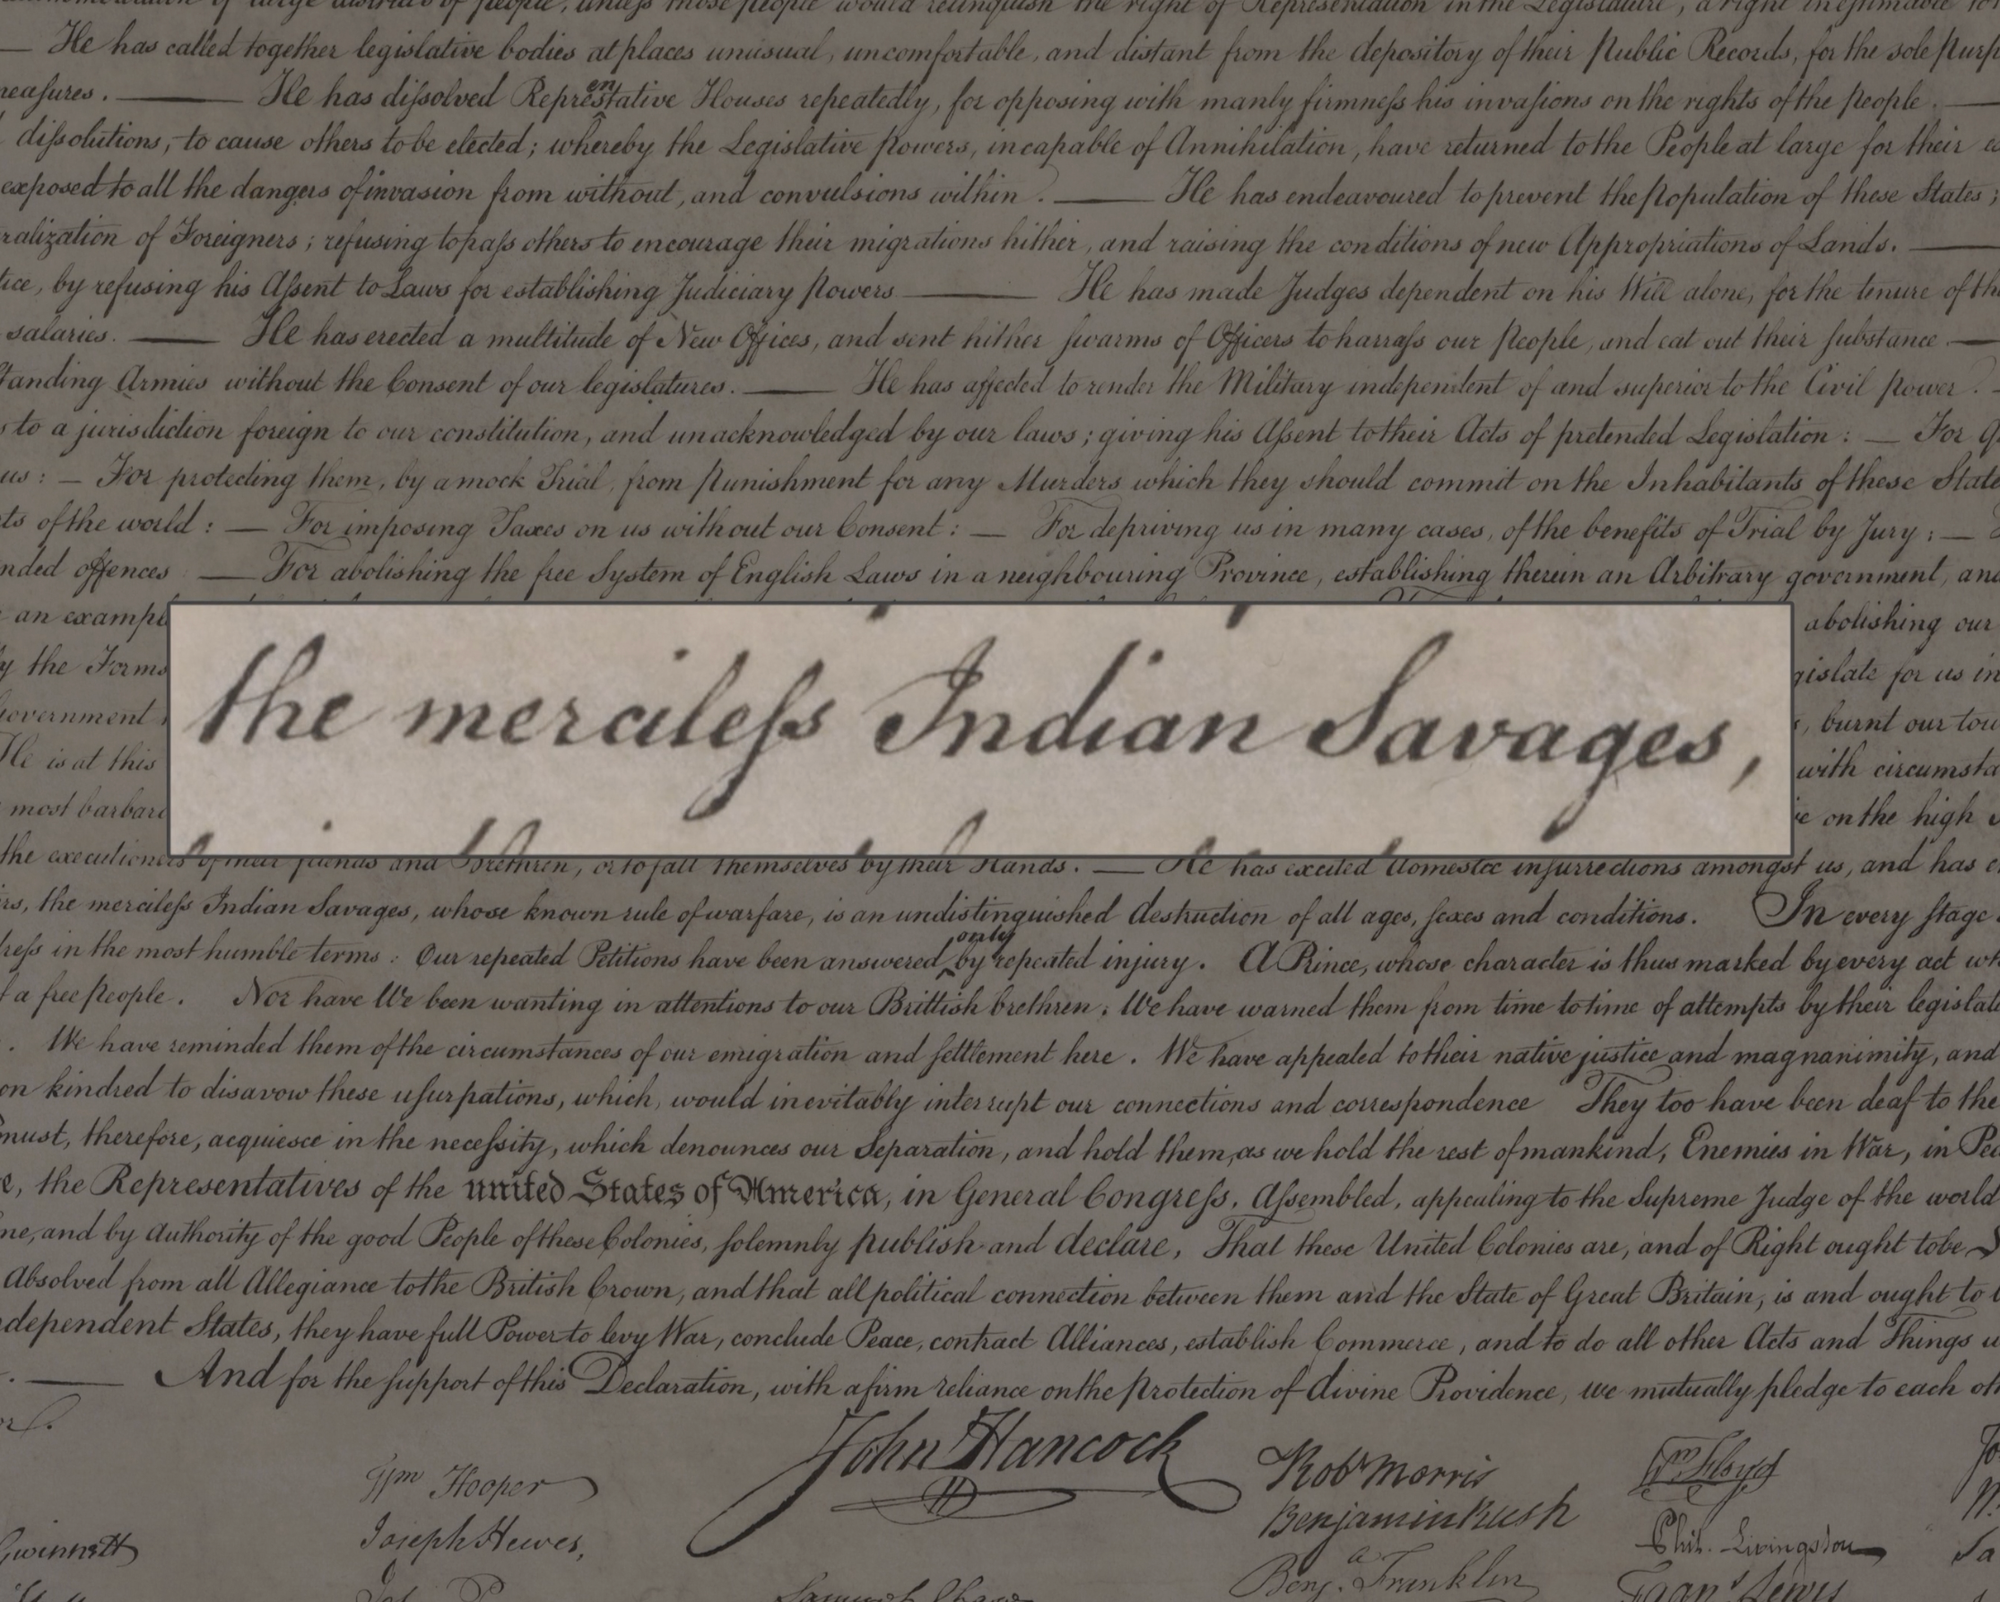 of large districts of people, unless those people would relinquish the right of Representation in the Legislature, a right inestimable to
— He has called together legislative bodies at places unusual, uncomfortable, and distant from the depository of their Public Records, for the sole
measures. — He has dissolved Representative Houses repeatedly, for opposing with manly firmness his invasions on the rights of the people. —
dissolutions, to cause others to be elected; whereby the Legislative powers, incapable of Annihilation, have returned to the People at large for their
exposed to all the dangers of invasion from without, and convulsions within. — He has endeavoured to prevent the population of these States;
ralization of Foreigners; refusing to pass others to encourage their migrations hither, and raising the conditions of new Appropriations of Lands. —
tice, by refusing his Assent to Laws for establishing Judiciary powers — He has made Judges dependent on his Will alone, for the tenure of
salaries. — He has erected a multitude of New Offices, and sent hither swarms of Officers to harrass our People, and eat out their substance. —
tanding Armies without the Consent of our legislatures. — He has affected to render the Military independent of and superior to the Civil power.
s to a jurisdiction foreign to our constitution, and unacknowledged by our laws; giving his Assent to their Acts of pretended Legislation: — For
us: — For protecting them, by a mock Trial, from punishment for any Murders which they should commit on the Inhabitants of these State
ts of the world: — For imposing Taxes on us without our Consent: — For depriving us in many cases, of the benefits of Trial by Jury: —
nded offences — For abolishing the free System of English Laws in a neighbouring Province, establishing therein an Arbitrary government, and
an exampl abolishing our
y the Forms gislate for us in
Government , burnt our tow
the merciless Indian Savages,
He is at this with circumsta
most barbaro on the high
the executioners of their friends and Brethren, or to fall themselves by their Hands. — He has excited domestic insurrections amongst us, and has
rs, the merciless Indian Savages, whose known rule of warfare, is an undistinguished destruction of all ages, sexes and conditions. In every stage
dress in the most humble terms: Our repeated Petitions have been answered only by repeated injury. A Prince, whose character is thus marked by every act
f a free People. Nor have We been wanting in attentions to our Brittish brethren. We have warned them from time to time of attempts by their legislat
. We have reminded them of the circumstances of our emigration and settlement here. We have appealed to their native justice and magnanimity, and
on kindred to disavow these usurpations, which, would inevitably interrupt our connections and correspondence They too have been deaf to the
must, therefore, acquiesce in the necessity, which denounces our Separation, and hold them, as we hold the rest of mankind, Enemies in War, in
e, the Representatives of the united States of America, in General Congress, Assembled, appealing to the Supreme Judge of the world
me, and by Authority of the good People of these Colonies, solemnly publish and declare, That these United Colonies are, and of Right ought to be
Absolved from all Allegiance to the British Crown, and that all political connection between them and the State of Great Britain, is and ought to
ndependent States, they have full Power to levy War, conclude Peace, contract Alliances, establish Commerce, and to do all other Acts and Things
. — And for the support of this Declaration, with a firm reliance on the protection of divine Providence, we mutually pledge to each
John Hancock
Wm Hooper
Joseph Hewes,
Gwinnett
Robt Morris
Benjamin Rush
Benja. Franklin
Wm Floyd
Phil. Livingston
Frans. Lewis
Samuel Chase